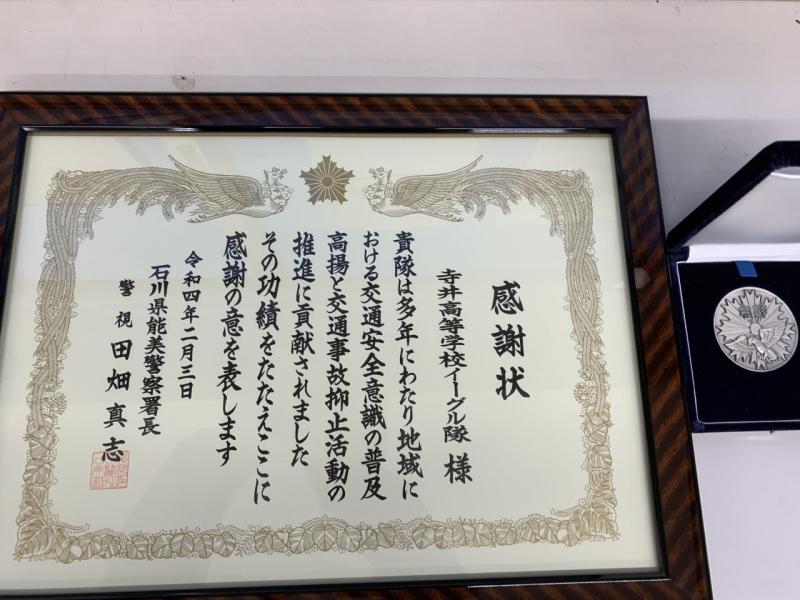 感謝状
寺井高等学校イーグル隊 様
貴隊は多年にわたり地域に
おける交通安全意識の普及
高揚と交通事故抑止活動の
推進に貢献されました
その功績をたたえここに
感謝の意を表します
令和四年二月三日
石川県能美警察署長
警視 田畑真志